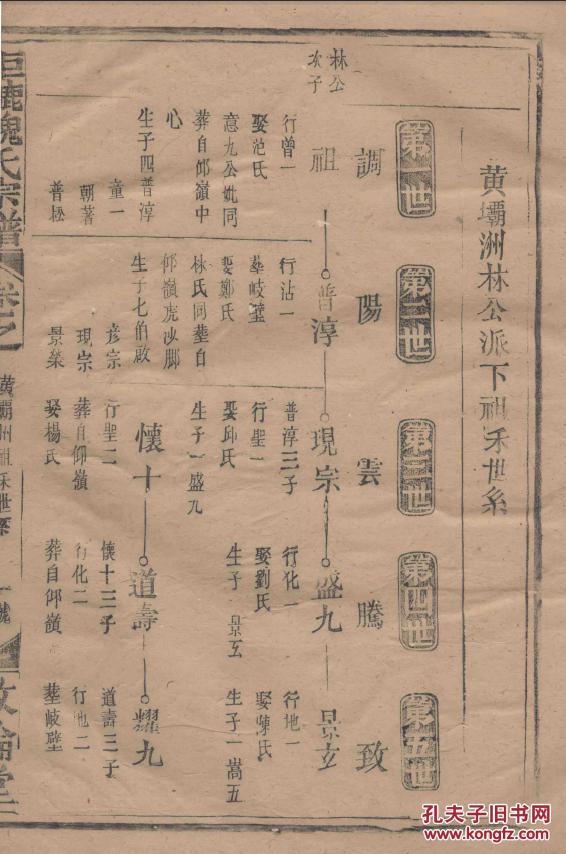 黄壩洲林公派下祖禾世系
第一世
第二世
第三世
第四世
第五世
調
陽
雲
騰
致
林公
次子
祖
普淳
現宗
盛九
景玄
行曾一
娶范氏
意九公妣同
葬自仰嶺中
心
生子四普淳
童一
朝著
普極
行沾一
葬岐壁
娶鄭氏
林氏同葬自
仰嶺虎沙脚
生子七伯啟
彦宗
現宗
景榮
普淳三子
行聖一
娶邱氏
生子一盛九
懷十
行聖二
葬自仰嶺
娶楊氏
行化一
娶劉氏
生子一景玄
道壽
懷十三子
行化二
葬自仰嶺
行地一
娶陳氏
生子一嵩五
耀九
道壽三子
行地二
葬岐壁
巨鹿魏氏宗譜
卷之一
黄壩洲祖禾世系
敦倫堂
孔夫子旧书网
www.kongfz.com